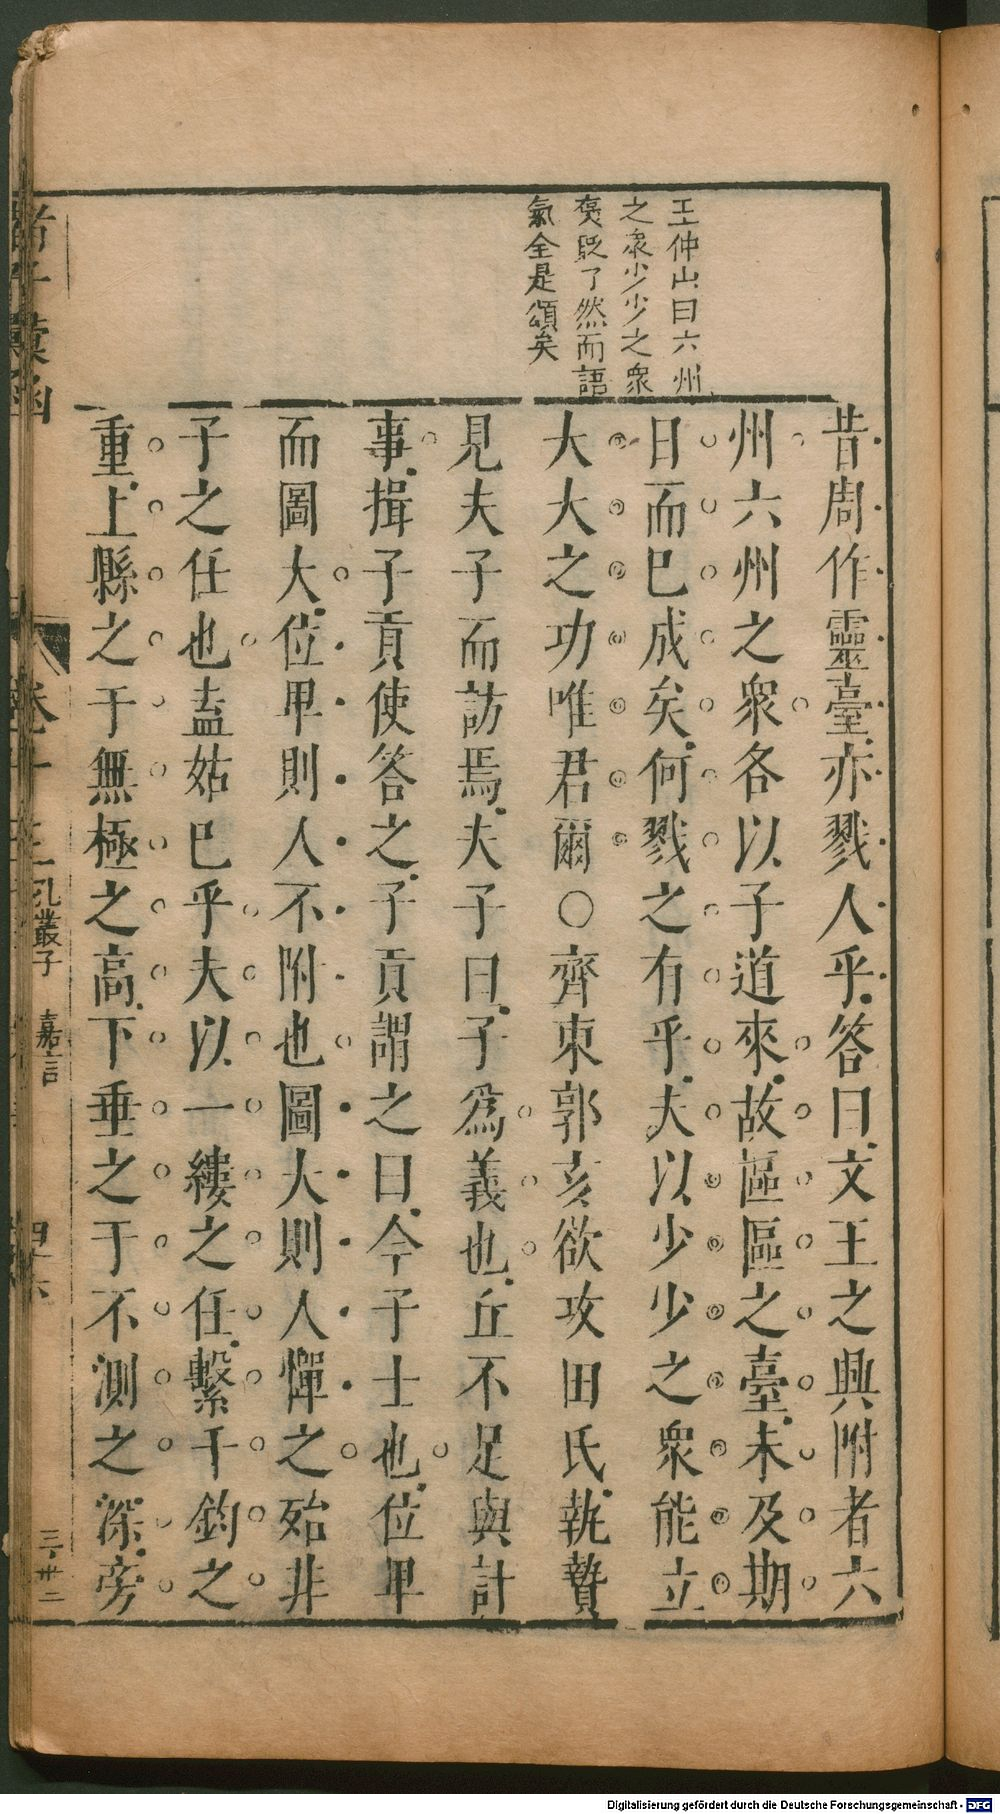 王仲山曰六州
之衆少少之衆
褒貶了然而語
氣全是頌矣
昔周作靈臺亦戮人乎答曰文王之興附者六
州六州之衆各以子道來故區區之臺未及期
日而已成矣何戮之有乎夫以少少之衆能立
大大之功唯君爾○齊東郭亥欲攻田氏執贄
見夫子而訪焉夫子曰子爲義也丘不足與計
事揖子貢使答之子貢謂之曰今子士也位卑
而圖大位卑則人不附也圖大則人憚之殆非
子之任也盍姑已乎夫以一縷之任繫千鈞之
重上縣之于無極之高下垂之于不測之深旁
諸子彙函
卷十
孔叢子 嘉言
Digitalisierung gefördert durch die Deutsche Forschungsgemeinschaft - DFG